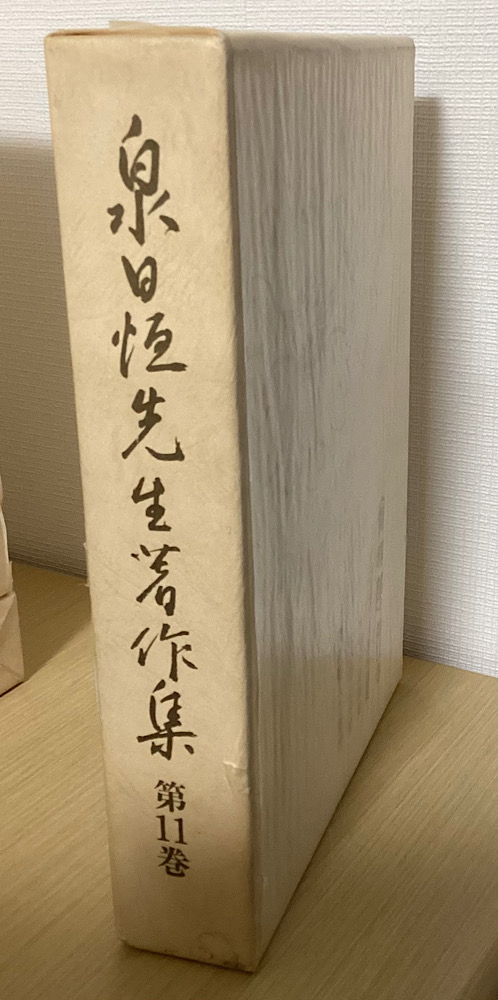 泉日恒先生著作集
第11巻